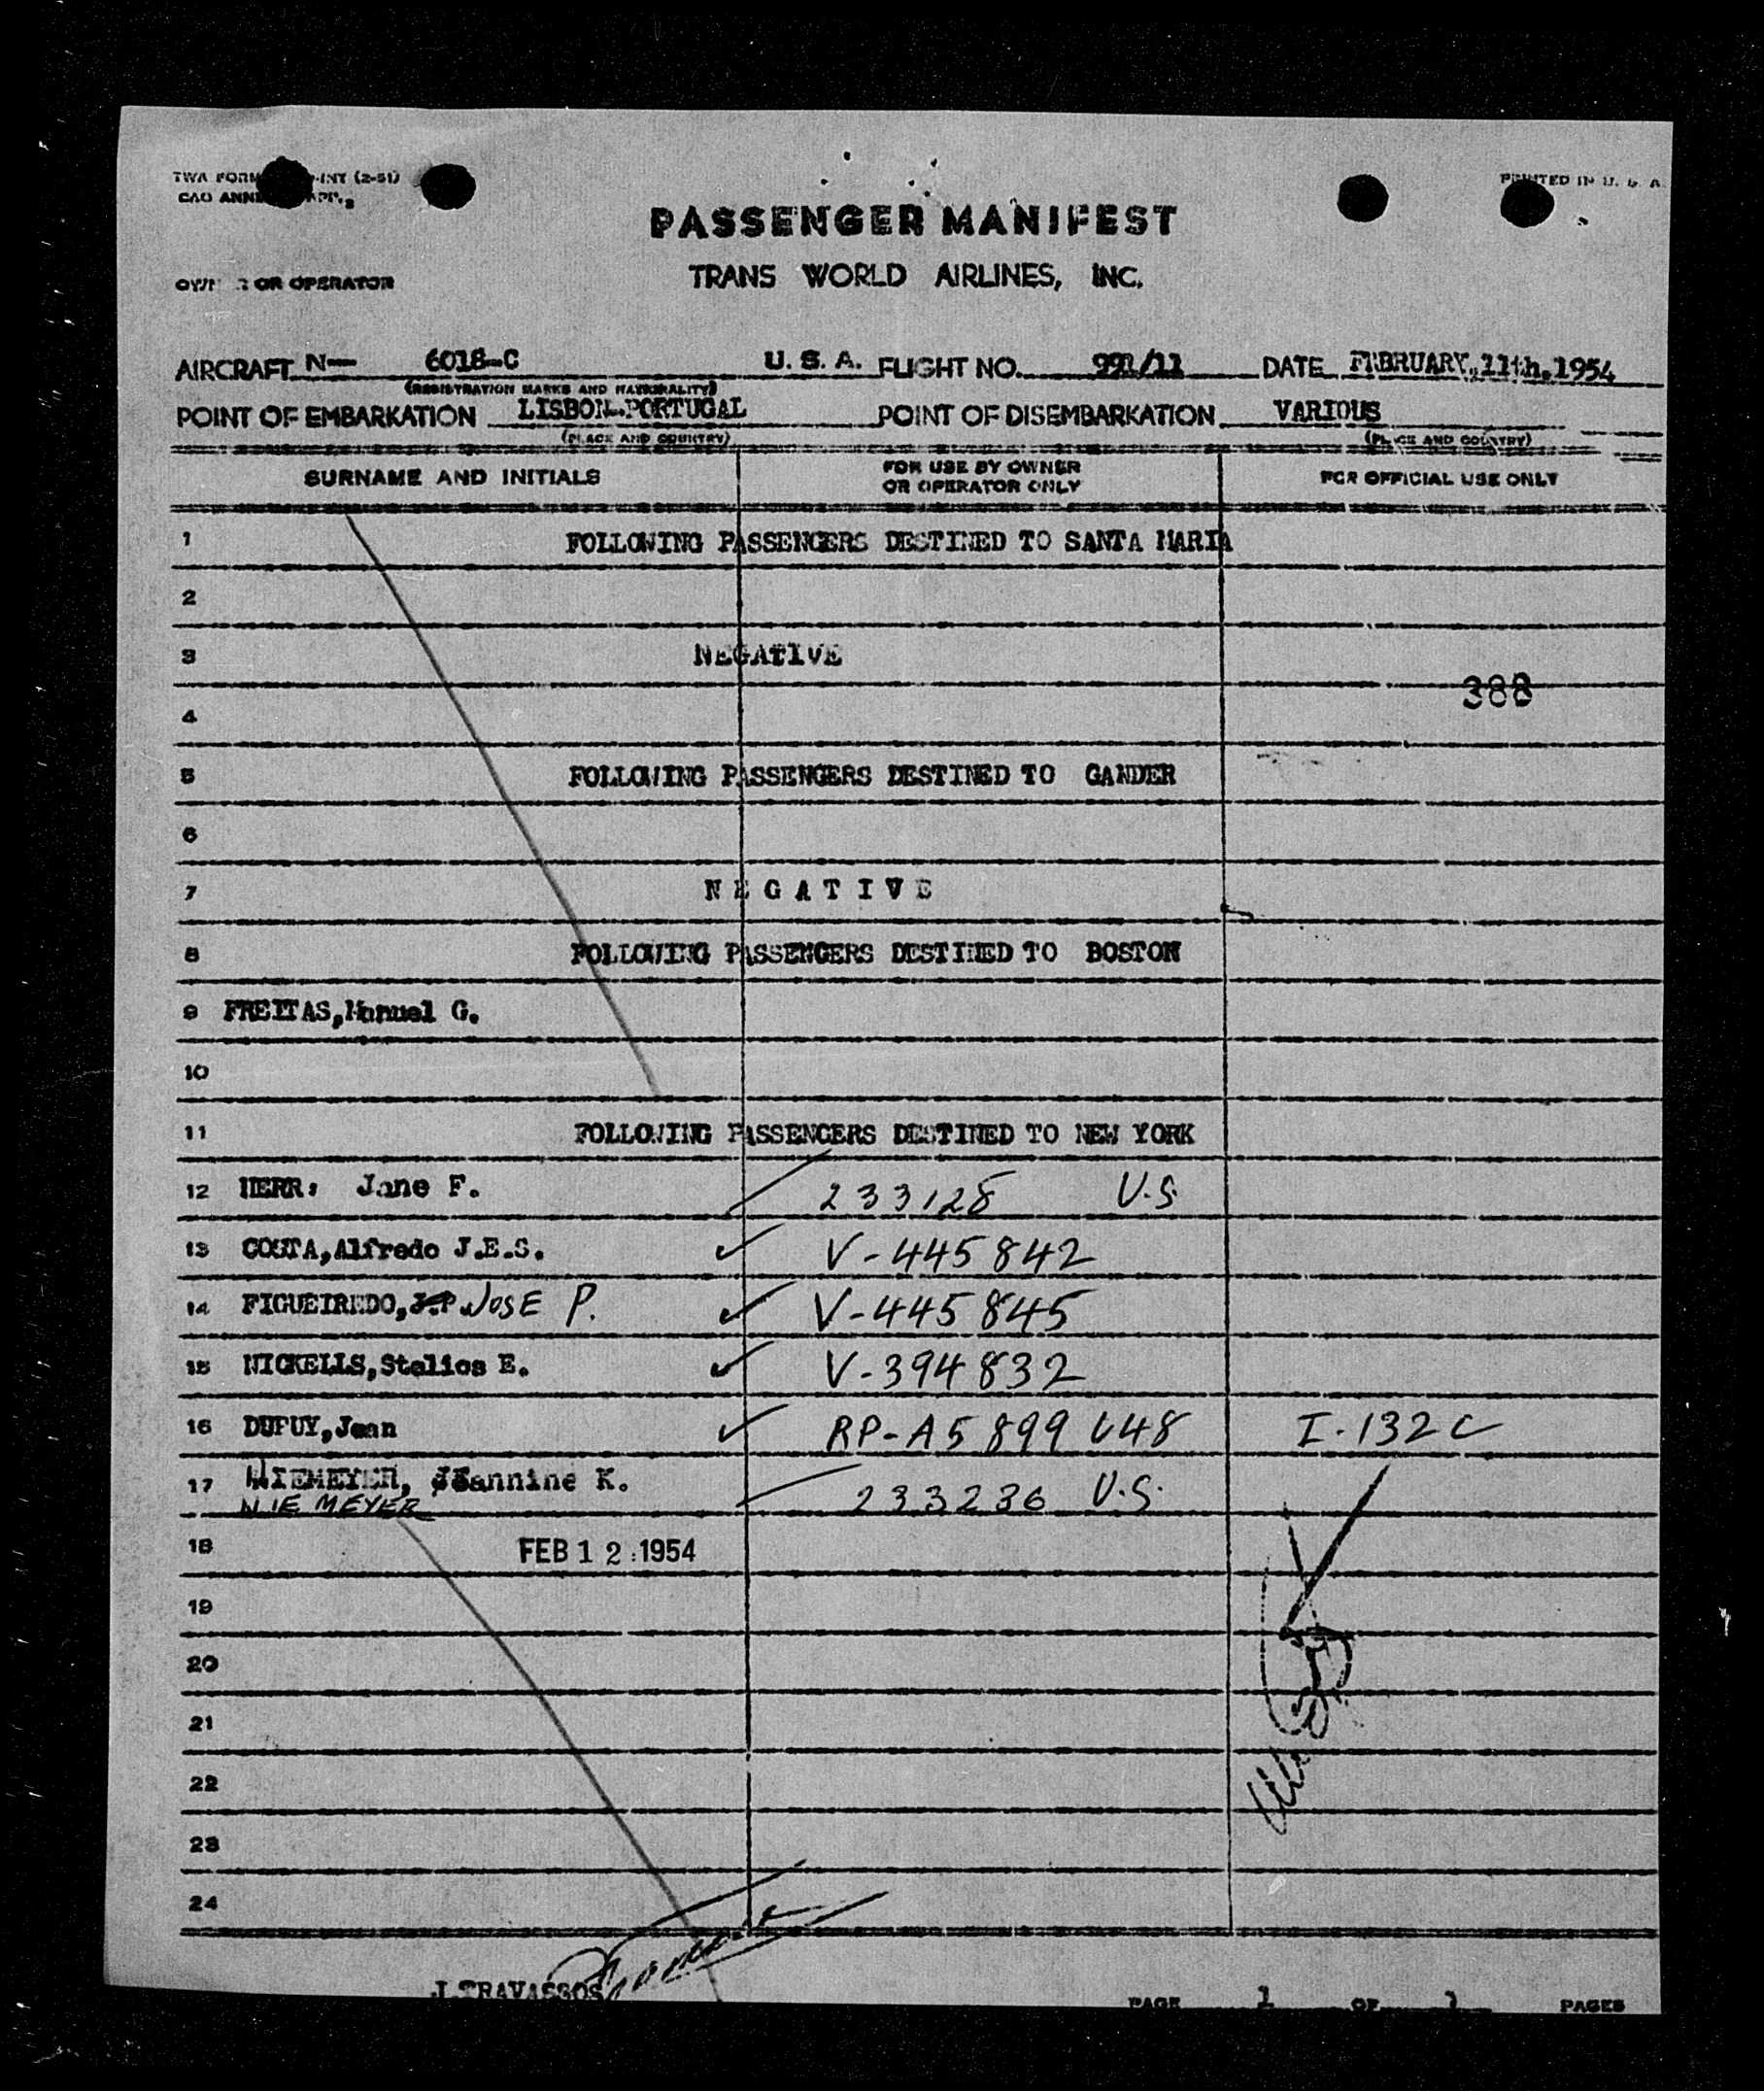 TWA FORM -INT (2-51)
PRINTED IN U. S. A.
PASSENGER MANIFEST
OR OPERATOR
TRANS WORLD AIRLINES, INC.
AIRCRAFT N- 6018-C U. S. A. FLIGHT NO. 991/11 DATE FEBRUARY,11th,1954
(REGISTRATION MARKS AND NATIONALITY)
POINT OF EMBARKATION LISBON.PORTUGAL POINT OF DISEMBARKATION VARIOUS
(PLACE AND COUNTRY) (PLACE AND COUNTRY)
SURNAME AND INITIALS FOR USE BY OWNER OR OPERATOR ONLY FOR OFFICIAL USE ONLY
1 FOLLOWING PASSENGERS DESTINED TO SANTA MARIA
2
3 NEGATIVE
388
4
5 FOLLOWING PASSENGERS DESTINED TO GANDER
6
7 N E G A T I V E
8 FOLLOWING PASSENGERS DESTINED TO BOSTON
9 FREITAS,Manuel G.
10
11 FOLLOWING PASSENGERS DESTINED TO NEW YORK
12 HERR: Jane F. 233128 U.S.
13 COSTA,Alfredo J.E.S. V-445842
14 FIGUEIREDO,J.P. JOSE P. V-445845
15 NICKELLS,Stelios E. V-394832
16 DUPUY,Jean RP-A5899048 I-132C
17 NIEMEYER, Jeannine K. 233236 U.S.
NIEMEYER
18 FEB 12 1954
19
20
21
22
23
24
J.TRAVASSOS
PAGE 1 OF 1 PAGES